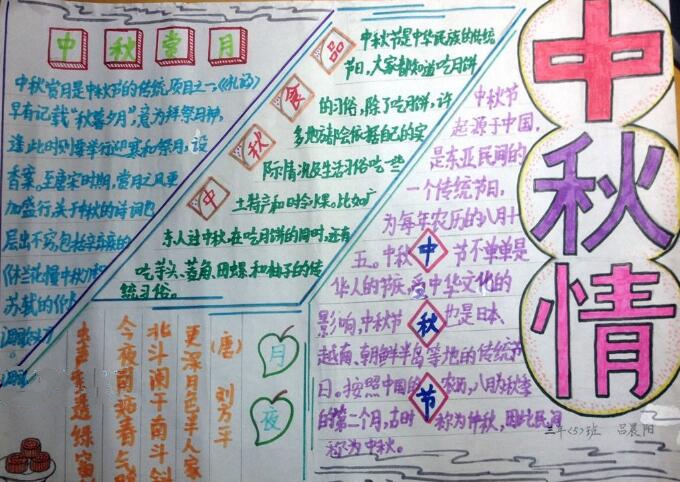 中秋赏月
中秋赏月是中秋节的传统项目之一。《礼记》
早有记载"秋暮夕月",意为拜祭月神,
逢此时则要举行迎寒和祭月,设
香案。至唐宋时期,赏月之风更
加盛行,关于中秋的诗词也
层出不穷,包括辛弃疾的
苏轼的
中秋食品
中秋节是中华民族的传统
节日,大家都知道吃月饼
的习俗,除了吃月饼,许
多地域都会依据自己的实
际情况及生活习俗吃一些
土特产和时令水果。比如广
东人过中秋,在吃月饼的同时,还有
吃芋头、菱角、田螺、和柚子的传
统习俗。
中秋情
中秋节
起源于中国,
是东亚民间的
一个传统节日,
为每年农历的八月十
五。中秋节不单单是
华人的节庆,受中华文化的
影响,中秋节也是日本、
越南、朝鲜半岛等地的传统节
日。按照中国的农历,八月为秋季
的第二个月,古时称为仲秋,因此民间
称为中秋。
中秋节
三年(5)班 吕晨阳
月夜
(唐) 刘方平
更深月色半人家
北斗阑干南斗斜
今夜
虫声
透绿窗